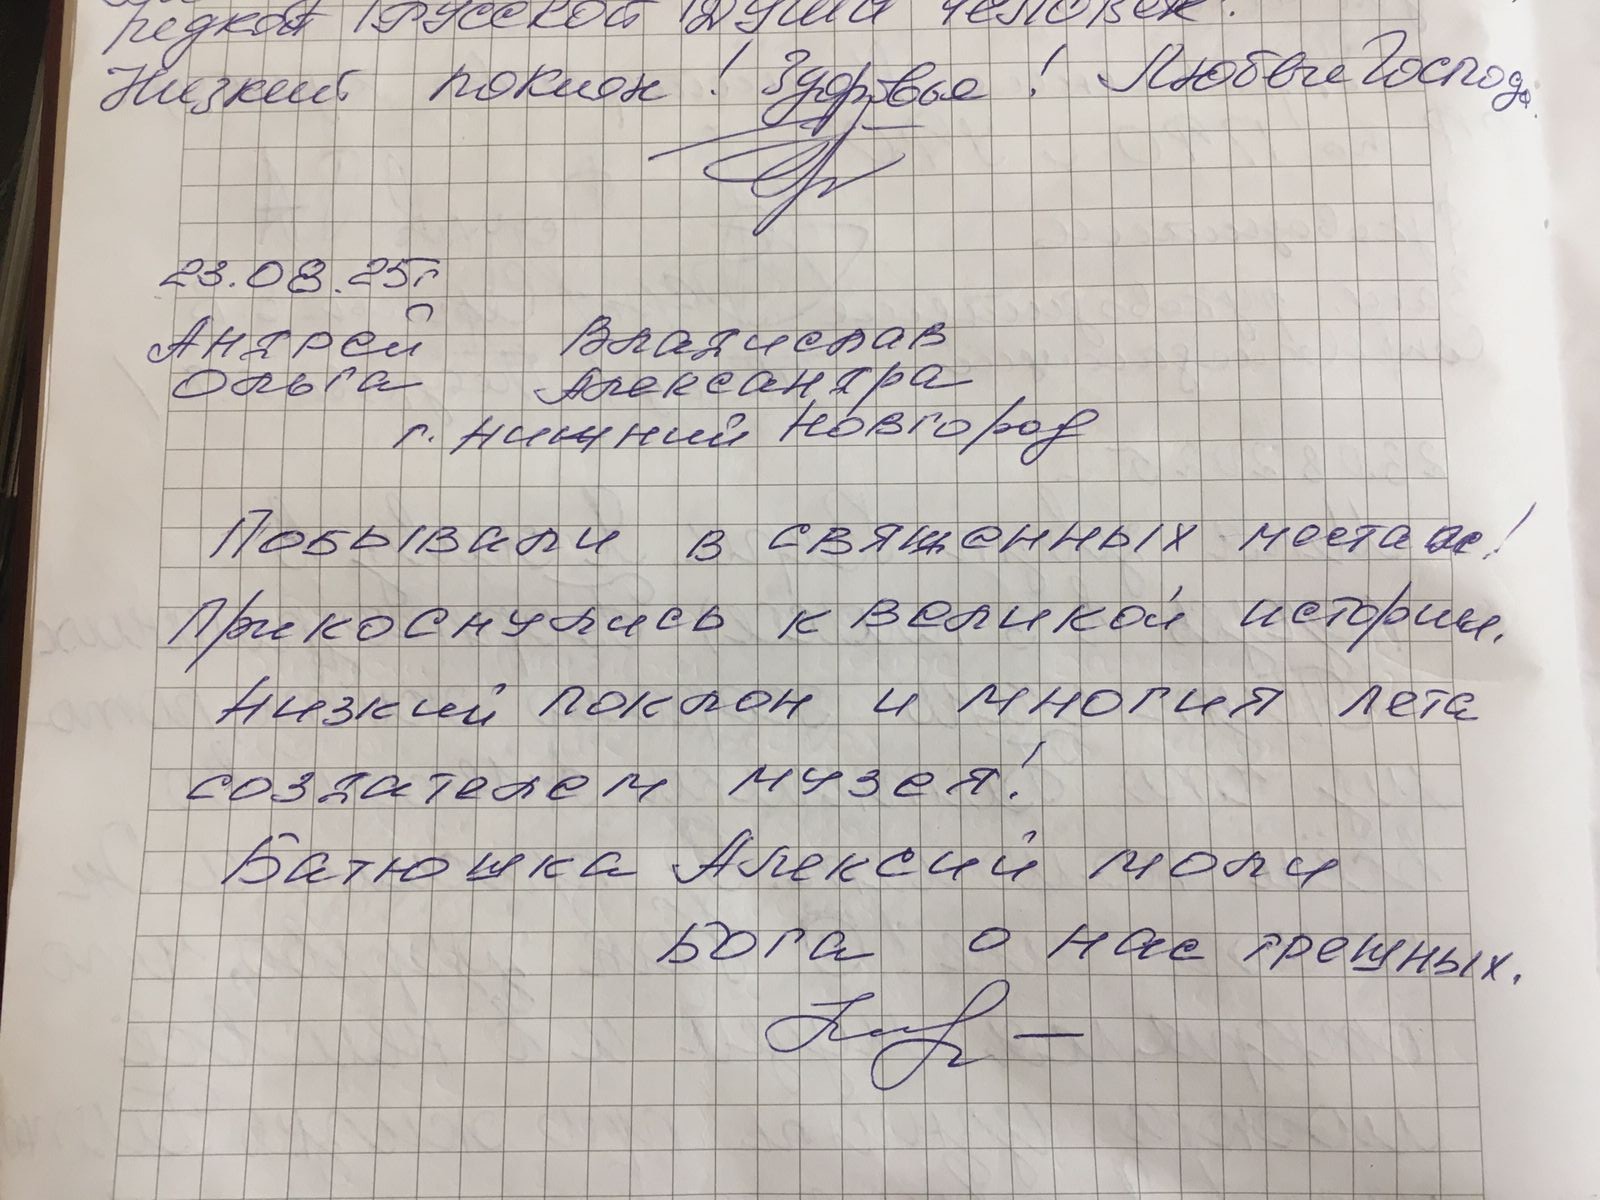 редкой Русской Души человек!
Низкий поклон! Здоровья! Любви Господа.
23.08.25г
Андрей Владислав
Ольга Александра
г. Нижний Новгород
Побывали в священных местах!
Прикоснулись к великой истории.
Низкий поклон и многия лета
создателем музея!
Батюшка Алексий моли
Бога о нас грешных.